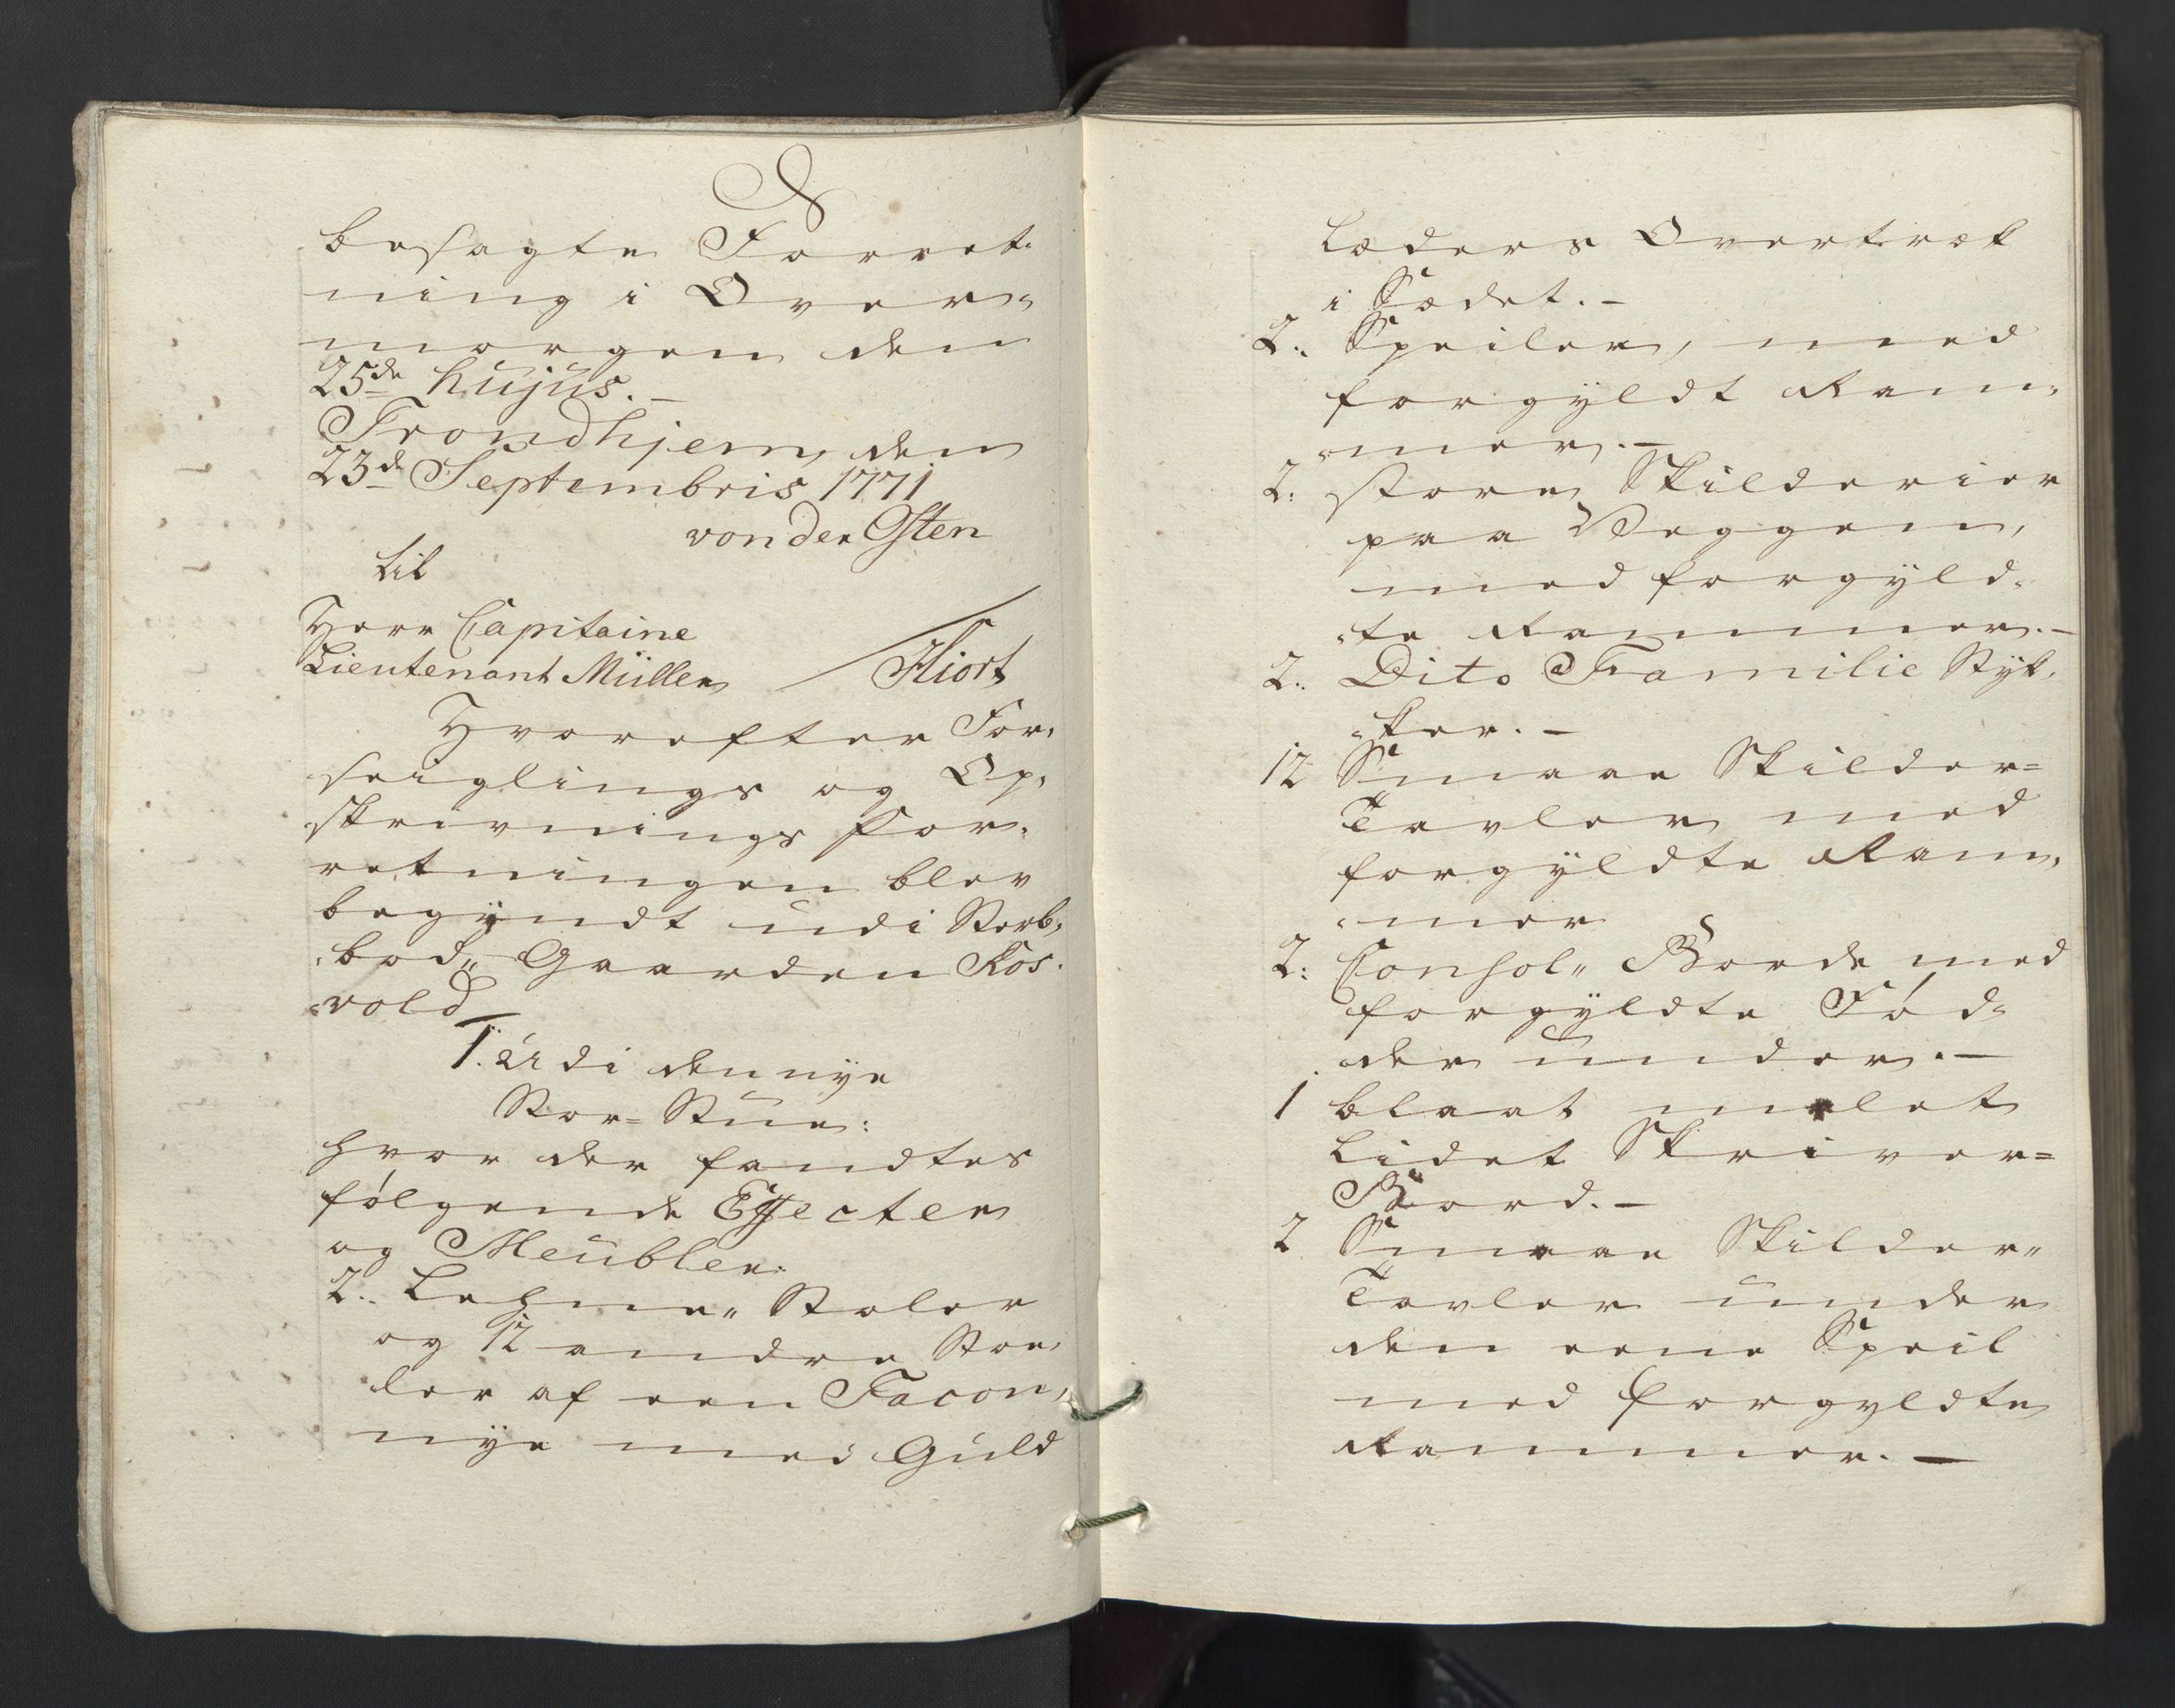 besagte Forret:
ning i Over:
morgen den
25de hujus. –
Trondhjem, den
23de Septembris 1771
von der Osten
til
Herr Capitaine
Lieutenant Müller / Hiort
Hvorefter For:
seiglings og Op:
skrivnings For:
retningen blev
begÿndt udi Sterb:
:bod„ Gaarden Ros:
:vold
1. Udi den nÿe
Stor = Stue:
hvor der fandtes
følgende Effecter
og Meubler:
2.. Lehne„ Stoler
og 12 andre Stoe:
ler af een Facon,
nÿe med Guld
Læders Overtræk
i Sædet. –
2.. Speiler, med
forgÿldt Ram:
:mer. –
2: store Skilderier
paa Veggen,
med forgÿld:
:te Rammer. –
2.. Dito Familie Stÿk:
:ker. –
12 Smaae Skilder=
Tavler med
forgÿldte Ram:
:mer
2: Consol„ Borde med
forgÿldte Fød:
:der under. –
1 blaat malet
Lidet Skriver=
Bord. –
2 Smaae Skilder„
Tavler under
den eene Speil
med forgyldte
Rammer. –